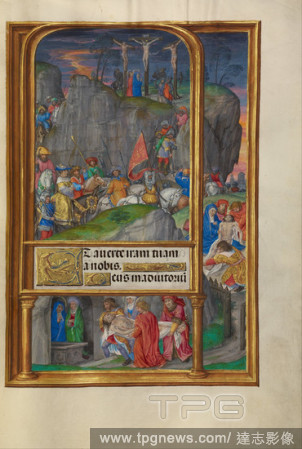 Et averte iram tuam
a nobis.
Deus in adiutoriu
TPG
www.tpgnews.com / 達志影像